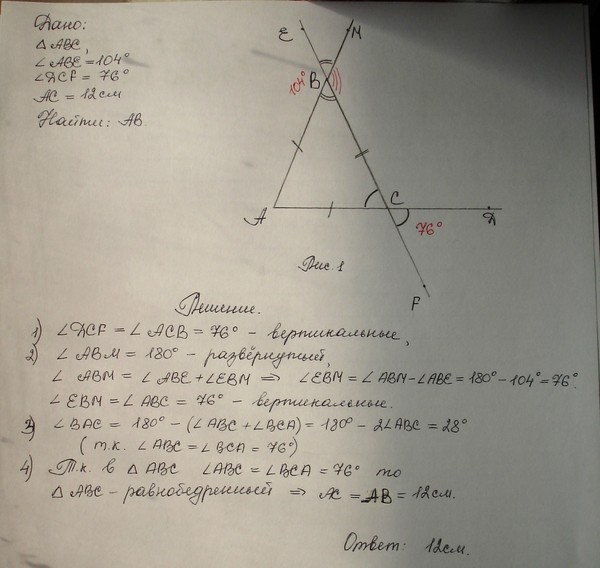 Дано:
△ABC,
∠ABE = 104°
∠DCF = 76°
AC = 12см
Найти: AB
E
M
104°
B
A
C
D
76°
F
Рис. 1
Решение.
1) ∠DCF = ∠ACB = 76° - вертикальные,
2) ∠ABM = 180° - развёрнутый,
∠ABM = ∠ABE + ∠EBM ⇒ ∠EBM = ∠ABM - ∠ABE = 180° - 104° = 76°.
∠EBM = ∠ABC = 76° - вертикальные.
3) ∠BAC = 180° - (∠ABC + ∠BCA) = 180° - 2∠ABC = 28°
(т.к. ∠ABC = ∠BCA = 76°)
4) Т.к. в △ABC ∠ABC = ∠BCA = 76° то
△ABC - равнобедренный ⇒ AC = AB = 12см.
Ответ: 12см.